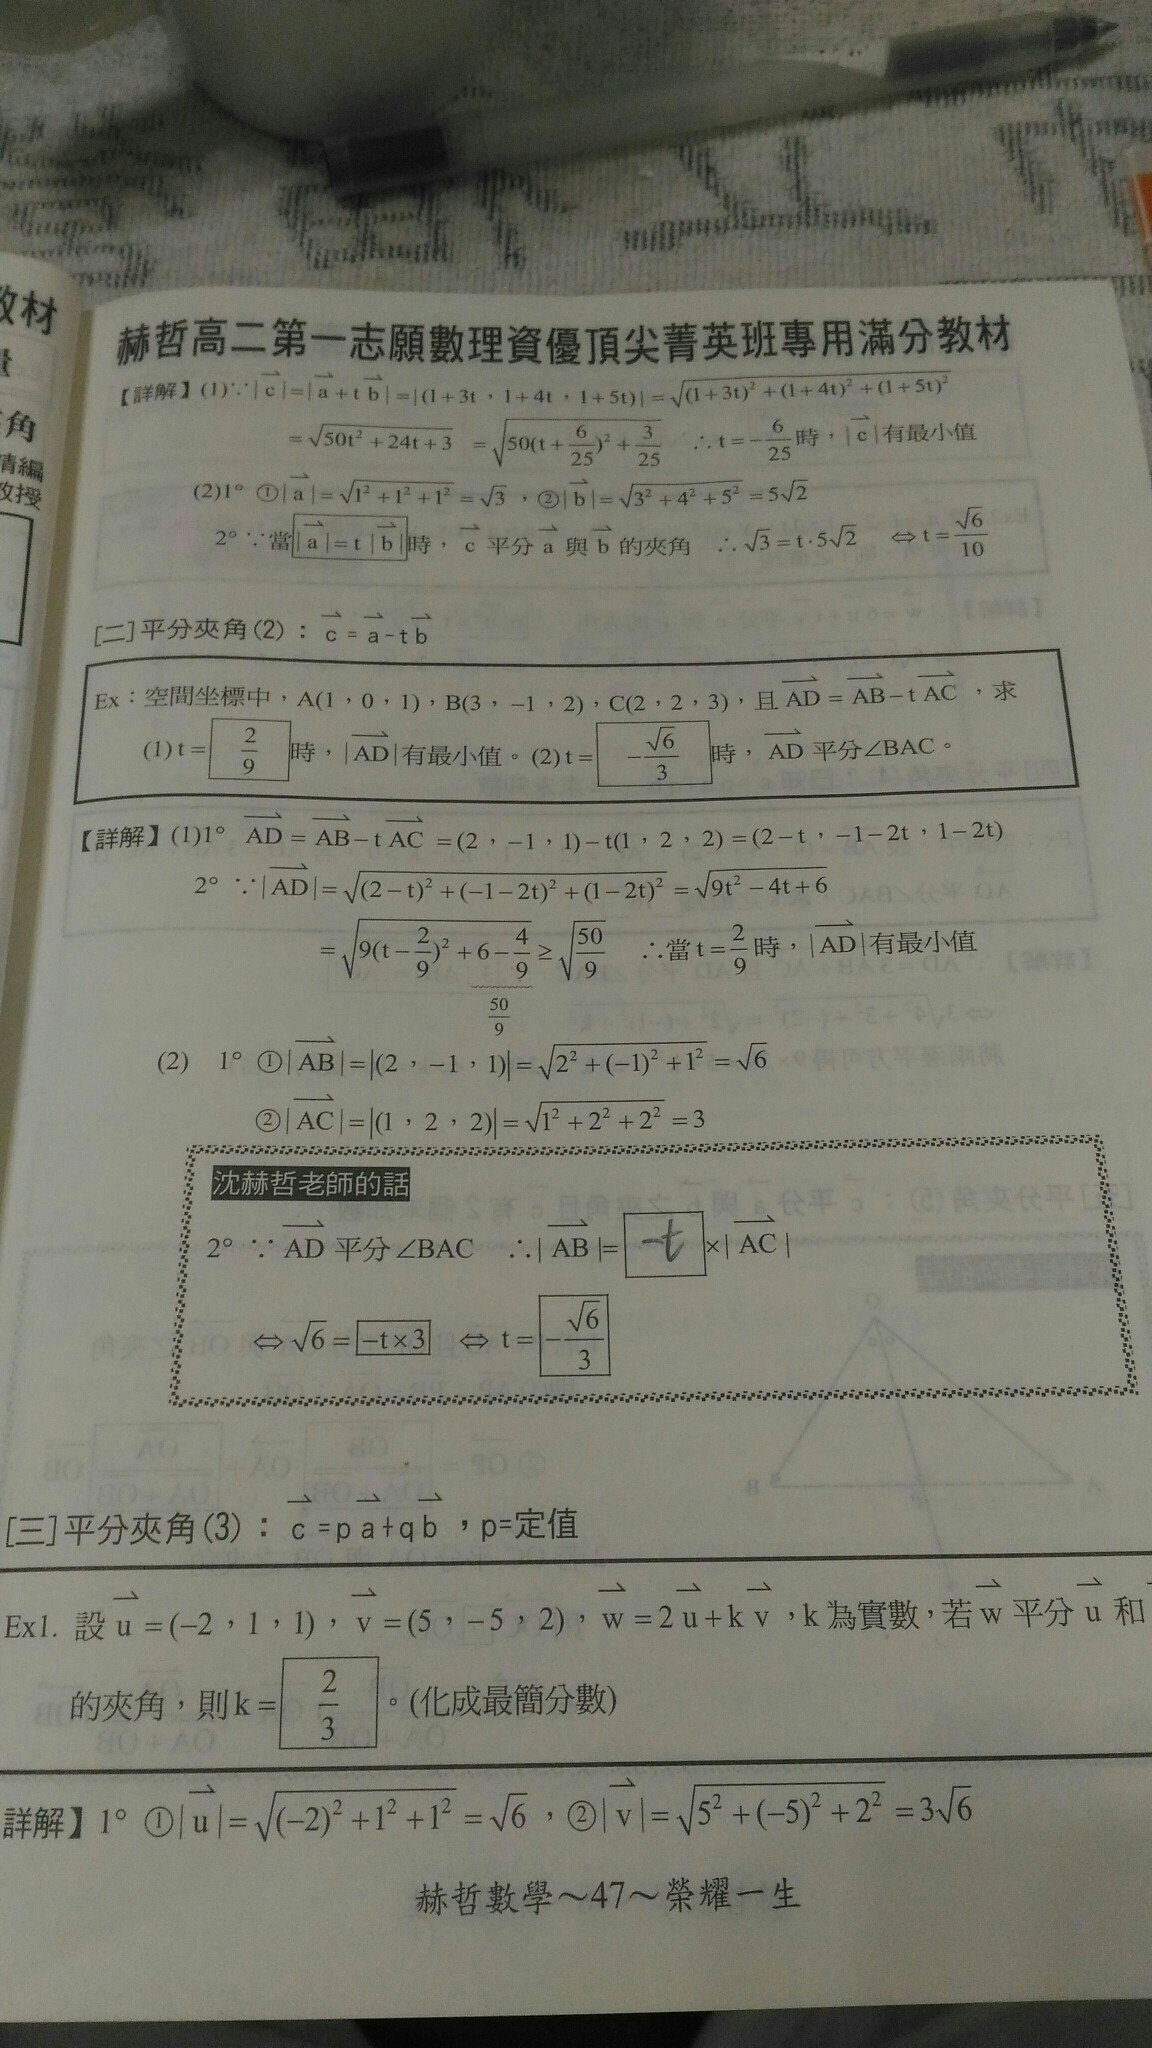 教材
角
精編
教授
赫哲高二第一志願數理資優頂尖菁英班專用滿分教材
【詳解】(1)∵|c⃗|=|a⃗+t b⃗|=|(1+3t，1+4t，1+5t)|=√((1+3t)²+(1+4t)²+(1+5t)²)
=√(50t²+24t+3) =√(50(t+6/25)²+3/25) ∴t=-6/25時，|c⃗|有最小值
(2)1° ①|a⃗|=√(1²+1²+1²)=√3，②|b⃗|=√(3²+4²+5²)=5√2
2° ∵當|a⃗|=t|b⃗|時，c⃗ 平分 a⃗ 與 b⃗ 的夾角 ∴√3=t·5√2 ⇔t=√6/10
[二]平分夾角(2)：c⃗=a⃗-t b⃗
Ex：空間坐標中，A(1，0，1)，B(3，-1，2)，C(2，2，3)，且 AD⃗=AB⃗-t AC⃗，求
(1)t=2/9時，|AD⃗|有最小值。(2)t=-√6/3時，AD⃗ 平分∠BAC。
【詳解】(1)1° AD⃗=AB⃗-t AC⃗=(2，-1，1)-t(1，2，2)=(2-t，-1-2t，1-2t)
2° ∵|AD⃗|=√((2-t)²+(-1-2t)²+(1-2t)²)=√(9t²-4t+6)
=√(9(t-2/9)²+6-4/9)≥√(50/9) ∴當t=2/9時，|AD⃗|有最小值
50/9
(2) 1° ①|AB⃗|=|(2，-1，1)|=√(2²+(-1)²+1²)=√6
②|AC⃗|=|(1，2，2)|=√(1²+2²+2²)=3
沈赫哲老師的話
2° ∵ AD⃗ 平分∠BAC ∴|AB⃗|=-t×|AC⃗|
⇔√6=-t×3 ⇔ t=-√6/3
[三]平分夾角(3)：c⃗=pa⃗+qb⃗，p=定值
Ex1. 設 u⃗=(-2，1，1)，v⃗=(5，-5，2)，w⃗=2u⃗+k v⃗，k為實數，若 w⃗ 平分 u⃗ 和
的夾角，則k=2/3。(化成最簡分數)
詳解】1° ①|u⃗|=√((-2)²+1²+1²)=√6，②|v⃗|=√(5²+(-5)²+2²)=3√6
赫哲數學～47～榮耀一生